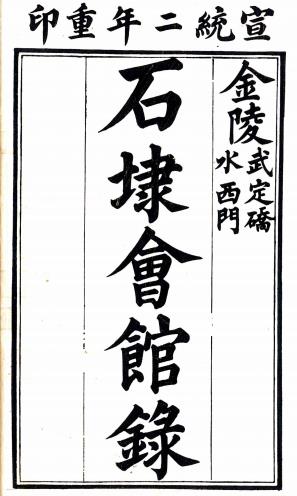 宣統二年重印
金陵
武定橋
水西門
石埭會館錄